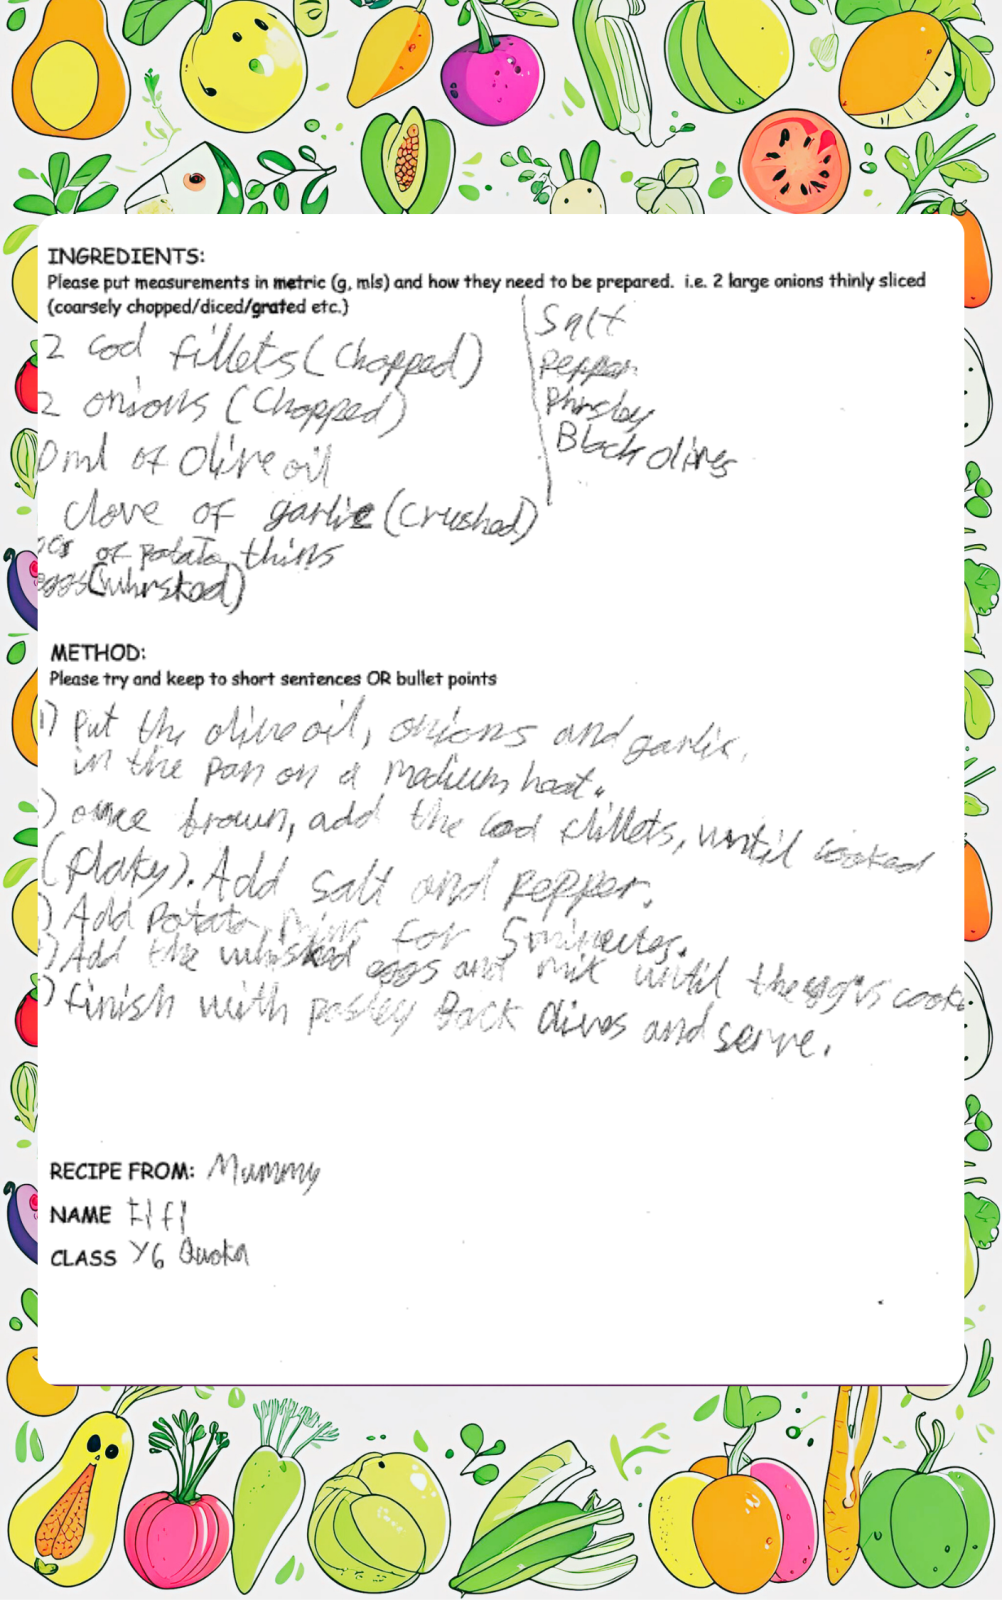 INGREDIENTS:
Please put measurements in metric (g, mls) and how they need to be prepared.  i.e. 2 large onions thinly sliced
(coarsely chopped/diced/grated etc.)
2 cod fillets (Chopped)
2 onions (Chopped)
0ml of Olive oil
clove of garlic (Crushed)
of potato thins
eggs (whisked)
Salt
Pepper
Phrsley
Black olives
METHOD:
Please try and keep to short sentences OR bullet points
1) Put the olive oil, onions and garlic,
in the pan on a medium heat.
) once brown, add the cod fillets, until cooked
(flaky). Add salt and pepper.
) Add Potato thins for 5 minutes.
) Add the whisked eggs and mix until the egg is cook
) finish with pasley Back Olives and serve.
RECIPE FROM: Mummy
NAME
CLASS Y6 Quokka